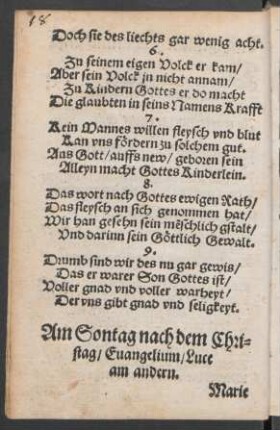 18
Doch sie des liechts gar wenig acht.
6.
Zu seinem eigen Volck er kam/
Aber sein Volck jn nicht annam/
Zu Kindern Gottes er do macht
Die glaubten in seins Namens Krafft
7.
Kein Mannes willen fleysch vnd blut
Kan vns fördern zu solchem gut.
Aus Gott/auffs new/geboren sein
Alleyn macht Gottes Kinderlein.
8.
Das wort nach Gottes ewigen Rath/
Das fleysch an sich genommen hat/
Wir han gesehn sein mẽschlich gstalt/
Vnd darinn sein Göttlich Gewalt.
9.
Drumb sind wir des nu gar gewis/
Das er warer Son Gottes ist/
Voller gnad vnd voller warheyt/
Der vns gibt gnad vnd seligkeyt.
Am Sontag nach dem Chri-
stag/Euangelium/Luce
am andern.
Marie